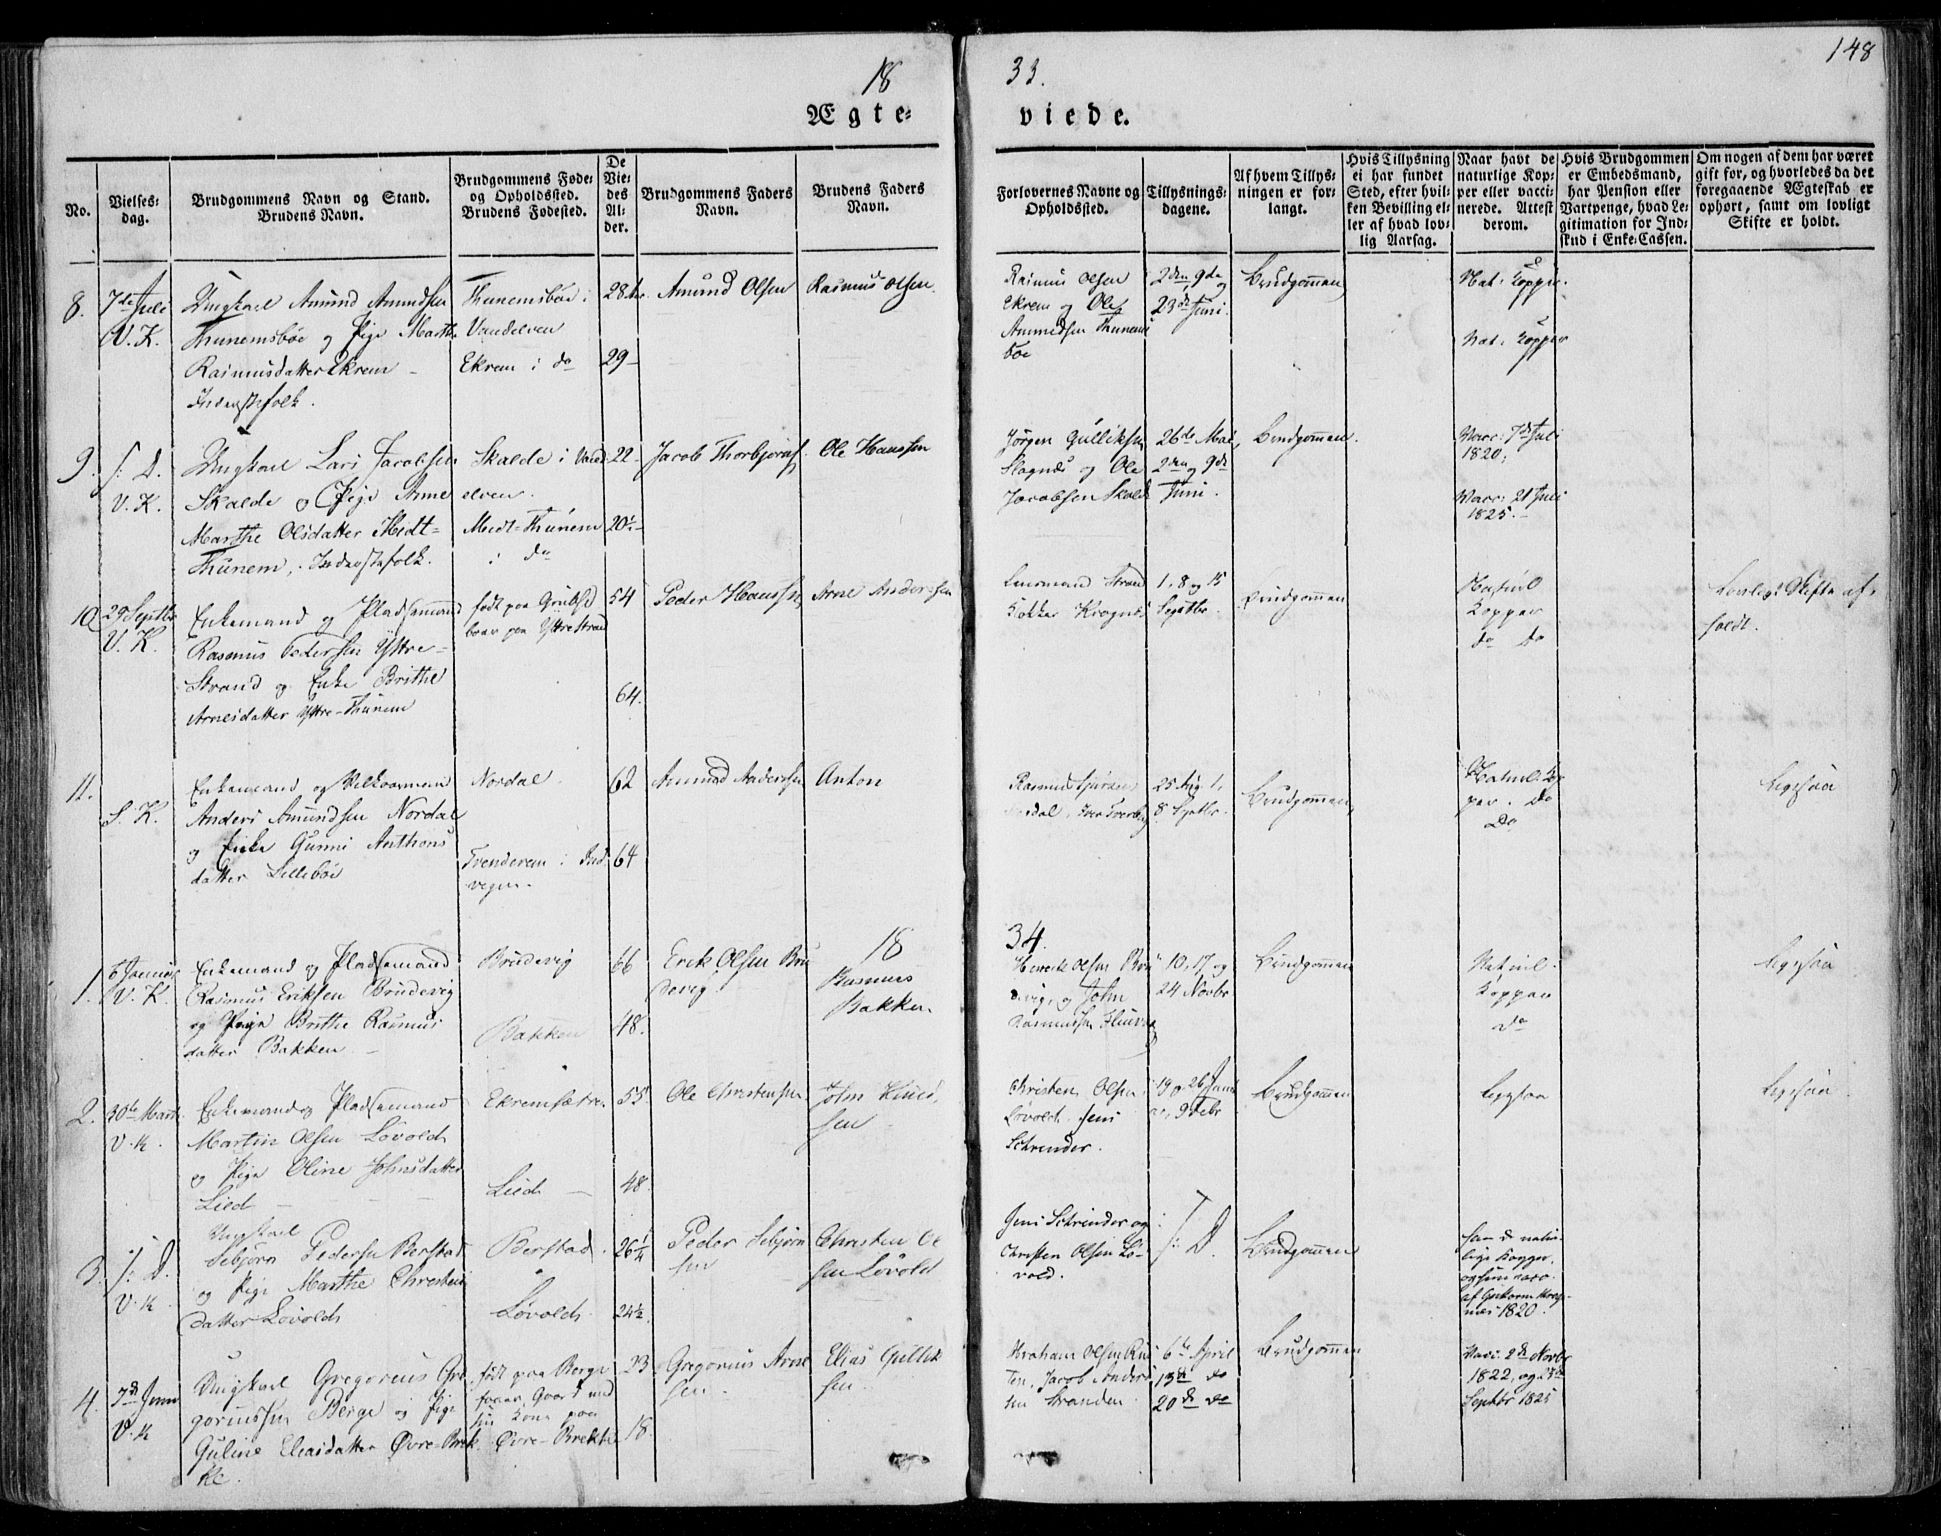 18
33.
148
Ægte-
viede.
No.
Vielses-
dag.
Brudgommens Navn og Stand.
Brudens Navn.
Brudgommens Føde-
og Opholdssted.
Brudens Fødested.
De
Vie-
des
Al-
der.
Brudgommens Faders
Navn.
Brudens Faders
Navn.
Forlovernes Navne og
Opholdssted.
Tillysnings-
dagene.
Af hvem Tillys-
ningen er for-
langt.
Hvis Tillysning
ei har fundet
Sted, efter hvil-
ken Bevilling el-
ler af hvad lov-
lig Aarsag.
Naar havt de
naturlige Kop-
per eller vacci-
nerede. Attest
derom.
Hvis Brudgommen
er Embedsmand,
har Pension eller
Vartpenge, hvad Le-
gitimation for Ind-
skud i Enke-Cassen.
Om nogen af dem har været
gift før, og hvorledes da det
foregaaende Ægteskab er
ophørt, samt om lovligt
Skifte er holdt.
8.
7de Juli
V. K.
Ungkarl Amund Amundsen
Thunemsböe og Pige Marthe
Rasmusdatter Ekrem –
Inderstfolk.
Thunemsböe i
Vandelven
Ekrem i do
28
29
Amund Olsen
Rasmus Olsen.
Rasmus Olsen
Ekrem og Ole
Amundsen Thunems
böe
2den, 9de og
23de Juni.
Brudgommen
Nat: Kopper.
Nat: Kopper
9.
s: D.
V. K.
Ungkarl Lars Jacobsen
Skalde og Pige Anne
Marthe Olsdatter Midt-
Thunem, Inderstfolk.
Skalde i Vand
elven.
Midt-Thunem
i do
22
20½
Jacob Thorbjørns
Ole Hanssen
Jörgen Gulliksen
Slagnæs og Ole
Jacobsen Skald
26de Mai,
2den og 9de
Juni.
Brudgommen.
Vacc: 7de Juli
1820;
Vacc: 21 Juli
1825. –
10.
29 Septbr
V. K.
Enkemand og Pladsemand
Rasmus Pedersen Yttre-
Strand og Enke Brithe
Arnesdatter Yttre-Thunem
født paa
boer paa Yttre Strand
54
64.
Peder Hanssen
Arne Andersen
Strand
1, 8 og 15
Septbr.
Brudgommen
Naturl
Kopper
do do
Lovligt Skifte af-
holdt.
11.
S. K.
Enkemand og
Anders Amundsen Nordal
og Enke Gunni Anthons
datter Lillebøe
Nordal.
i Ind
vigen.
62
64
Amund Andersen
Anton
Rasmus
25 Aug. 1,
8 Septbr.
Brudgommen,
Naturl. Kop
per. do
Do
Ligesaa
18
34.
1.
V. K.
Enkemand og Pladsemand
Rasmus Eriksen Brudevig
og Pige Brithe Rasmus
datter Bakken –
Brudevig
Bakken
66
48.
Erik Olsen Bru
devig.
Rasmus
Bakken.
Henrik Olsen Bru
devig, og John
Rasmussen
10, 17 og
24 Novbr
Brudgommen
Naturl.
Kopper
do
Ligesaa
2.
30te Marts
V. K.
Enkemand og Pladsemand
Martin Olsen Løvold
og Pige Oline Johnsdatter
Lied –
Ekremsætre
Lied –
55
48.
Ole Christensen
John Knud
sen
Christen Olsen
Løvold. Jens
Schrender.
19 og 26 Janu
ar, 9 Febr
Brudgommen
Ligesaa
Ligesaa.
3.
s: D.
V. K
Ungkarl
Sebjörn Pedersen Berstad
og Pige Marthe Christens
datter Løvold
Berstad.
Løvold.
26½
24½.
Peder Sebjörn
sen
Christen Ol
sen Løvold
Jens Schrender og
Christen Olsen Lø-
vold.
s: D.
Brudgommen
ham de natur
lige Kopper.
og hun vacc.
1820.
4.
7de Juni
V. K
Ungkarl Gregorius Gre
goriussen Berge og Pige
Guline Eliasdatter Øvre-Brek
ke.
født paa Berge
Øvre-Brekke
23.
18
Gregorius Arne
sen.
Elias Gullik
sen
Abraham Olsen
Jacob Anders
sen Stranden
6te April
13de do
20de do
Brudgommen
Vacc. 2de Novbr
1822, og
Septbr 1825